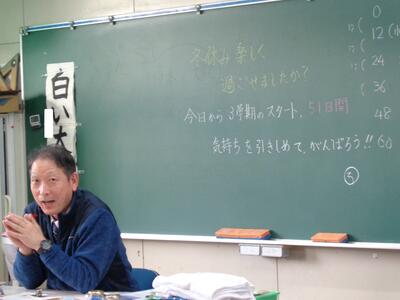 白い
冬休み楽しく
過ごせましたか?
今日から3学期のスタート、51日間
気持ちを引きしめて、がんばろう!!
ろ
0
12
24
36
48
60